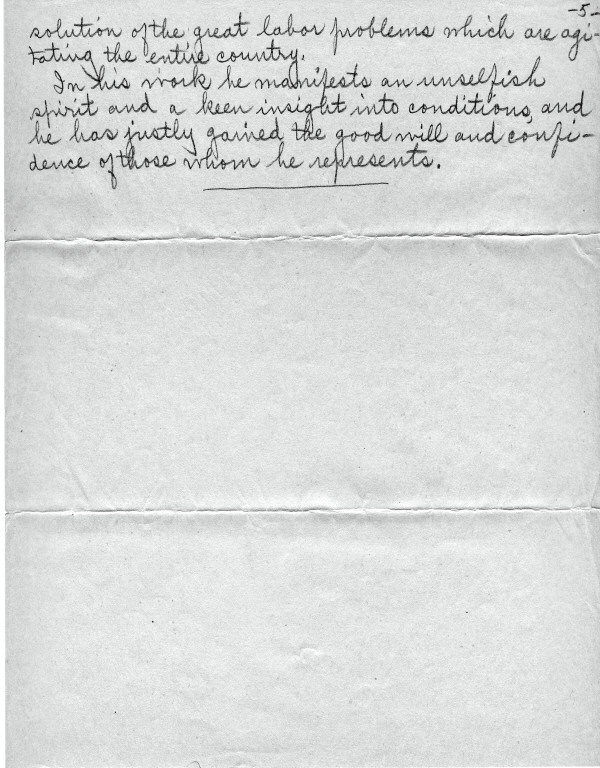 -5-
solution of the great labor problems which are agi-
tating the entire country.
In his work he manifests an unselfish
spirit and a keen insight into conditions, and
he has justly gained the good will and confi-
dence of those whom he represents.